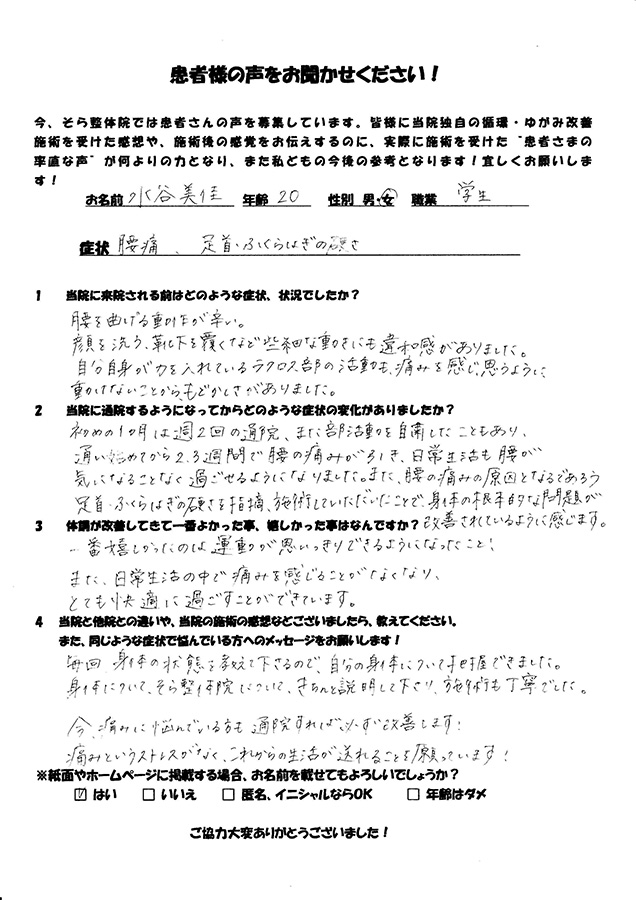 患者様の声をお聞かせください！
今、そら整体院では患者さんの声を募集しています。皆様に当院独自の循環・ゆがみ改善
施術を受けた感想や、施術後の感覚をお伝えするのに、実際に施術を受けた“患者さまの
率直な声”が何よりの力となり、また私どもの今後の参考となります！宜しくお願いしま
す！
お名前 水谷美佳 年齢 20 性別 男・女 職業 学生
症状 腰痛、足首・ふくらはぎの硬さ
1 当院に来院される前はどのような症状、状況でしたか？
腰を曲げる動作が辛い。
顔を洗う、靴下を履くなど些細な動きにも違和感がありました。
自分自身が力を入れているラクロス部の活動も、痛みを感じ思うように
動けないことからもどかしさがありました。
2 当院に通院するようになってからどのような症状の変化がありましたか？
初めの1ヶ月は週2回の通院、また部活動を自粛したこともあり、
通い始めてから2、3週間で腰の痛みが引き、日常生活も腰が
気になることなく過ごせるようになりました。また、腰の痛みの原因となるであろう
足首・ふくらはぎの硬さを指摘、施術していただいたことで、身体の根本的な問題が
改善されているように感じます。
3 体調が改善してきて一番よかった事、嬉しかった事はなんですか？
一番嬉しかったのは運動が思いっきりできるようになったこと！
また、日常生活の中で痛みを感じることがなくなり、
とても快適に過ごすことができています。
4 当院と他院との違いや、当院の施術の感想などございましたら、教えてください。
また、同じような症状で悩んでいる方へのメッセージをお願いします！
毎回、身体の状態を教えて下さるので、自分の身体について把握できました。
身体について、そら整体院について、きちんと説明して下さり、施術も丁寧でした。
今、痛みに悩んでいる方も通院すれば、必ず改善します！
痛みというストレスがなく、これからの生活が送れることを願っています！
※紙面やホームページに掲載する場合、お名前を載せてもよろしいでしょうか？
☑ はい □ いいえ □ 匿名、イニシャルならOK □ 年齢はダメ
ご協力大変ありがとうございました！